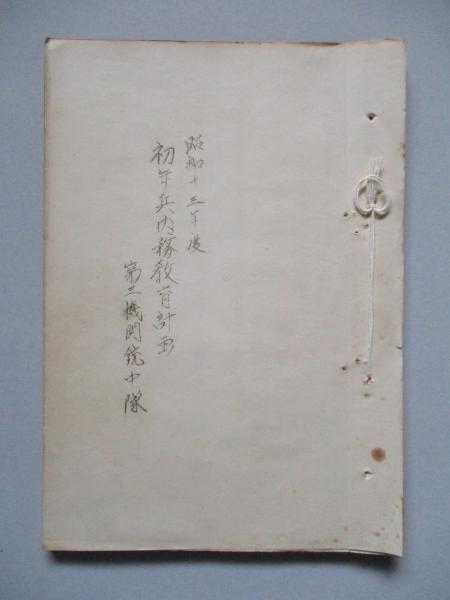 昭和十三年度
初年兵内務教育計画
第三機関銃中隊